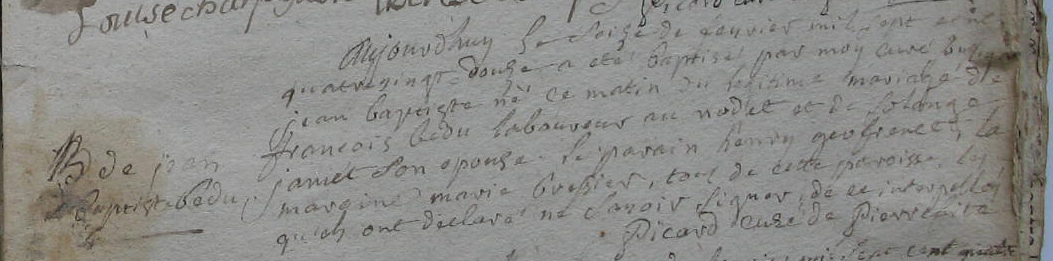 Louise charp
Picard
Aujourd'huy le seize de fevrier mil sept cent
quatre vingt douze a été baptisé par moy curé
jean baptiste né ce matin du legitime mariage de
francois bedu laboureur au nodet et de solange
B de jean
jamet son epouse. le parain henry geofrenet, la
baptiste bedu,
margine marie bressier, tous de cette paroisse, les
quels ont declaré ne savoir signer, de ce interpellés
Picard curé de Pierrefite
mil sept cent quatre